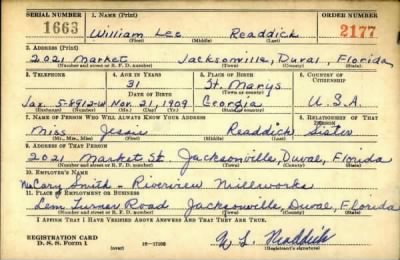 SERIAL NUMBER 1. NAME (Print) ORDER NUMBER
1663 William Lee Readdick 2177
(First) (Middle) (Last)
2. ADDRESS (Print)
2021 Market Jacksonville, Duval, Florida
(Number and street or R. F. D. number) (Town) (County) (State)
3. TELEPHONE 4. AGE IN YEARS 5. PLACE OF BIRTH 6. COUNTRY OF CITIZENSHIP
31 St. Marys
DATE OF BIRTH (Town or county)
Jax. 5-8912-W Nov. 21, 1909 Georgia U.S.A.
(Exchange) (Number) (Mo.) (Day) (Yr.) (State or country)
7. NAME OF PERSON WHO WILL ALWAYS KNOW YOUR ADDRESS 8. RELATIONSHIP OF THAT PERSON
Miss Jessie Readdick Sister
(Mr., Mrs., Miss) (First) (Middle) (Last)
9. ADDRESS OF THAT PERSON
2021 Market St. Jacksonville, Duval, Florida
(Number and street or R. F. D. number) (Town) (County) (State)
10. EMPLOYER'S NAME
Cary Smith - Riverview Millworks
11. PLACE OF EMPLOYMENT OR BUSINESS
Lem Turner Road Jacksonville, Duval, Florida
(Number and street or R. F. D. number) (Town) (County) (State)
I AFFIRM THAT I HAVE VERIFIED ABOVE ANSWERS AND THAT THEY ARE TRUE.
REGISTRATION CARD
D. S. S. Form 1 (over) W L Readdick
(Registrant's signature)